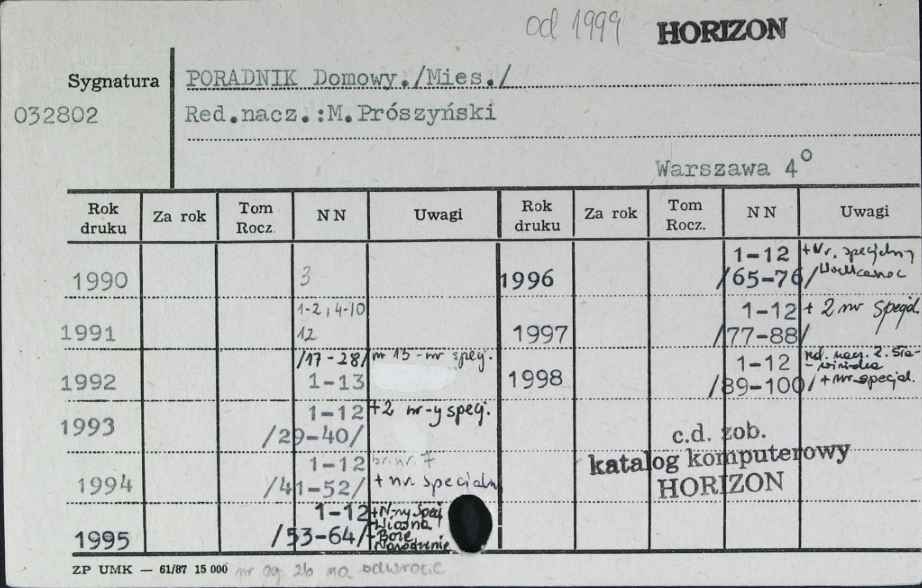 od 1999 HORIZON
Sygnatura PORADNIK Domowy./Mies./
032802 Red.nacz.:M.Prószyński
Warszawa 4°
Rok druku Za rok Tom Rocz. NN Uwagi Rok druku Za rok Tom Rocz. NN Uwagi
1990 3
1991 1-2, 4-10 12
1992 /17-28/ 1-13 nr 13-nr specj.
1993 1-12 /29-40/ +2 nr-y specj.
1994 1-12 /41-52/ br. nr 7 + nr. specjaln
1995 1-12 /53-64/ +N-ny Specj Wiosna +Boże Narodzenie
1996 1-12 /65-76/ +Nr. specjalny Wielkanoc
1997 1-12 /77-88/ + 2 nr specjal.
1998 1-12 /89-100/ + nr specjal.
c.d. zob.
katalog komputerowy
HORIZON
ZP UMK — 61/87 15 000 nr na odwrocie